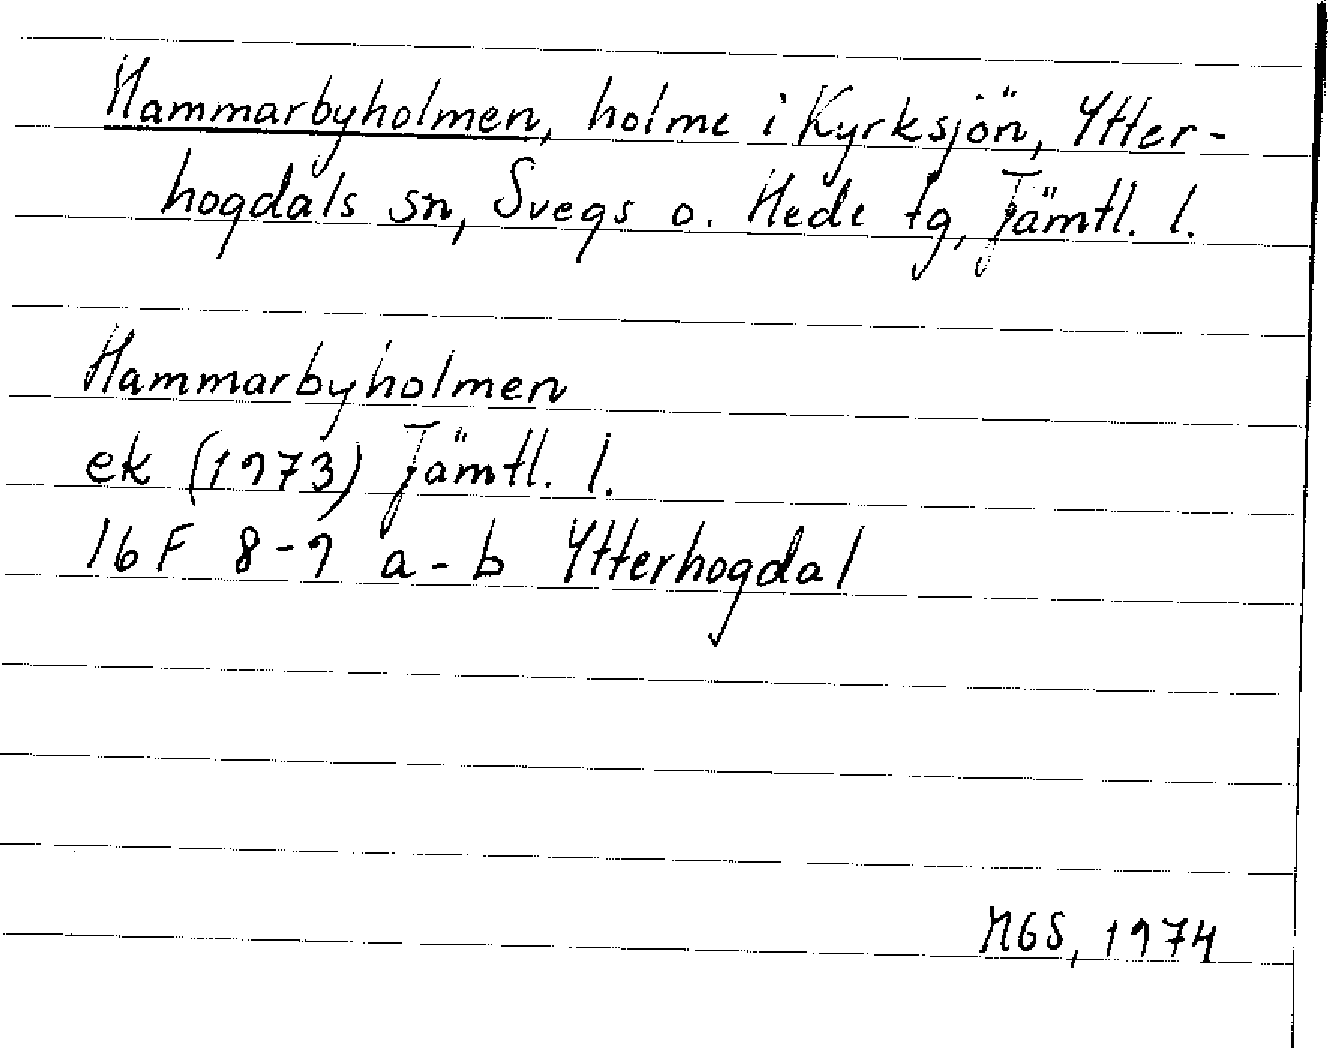 Hammarbyholmen, holme i Kyrksjön, Ytter-
hogdals sn, Svegs o. Hede tg, Jämtl. l.
Hammarbyholmen
ek (1973) Jämtl. l.
16F 8-9 a-b Ytterhogdal
NGS, 1974